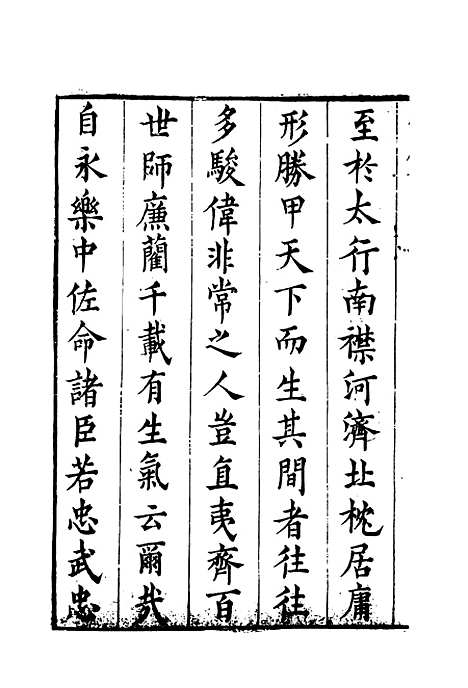 至於太行南襟河濟北枕居庸
形勝甲天下而生其間者往往
多駿偉非常之人豈直夷齊百
世師廉藺千載有生氣云爾哉
自永樂中佐命諸臣若忠武忠